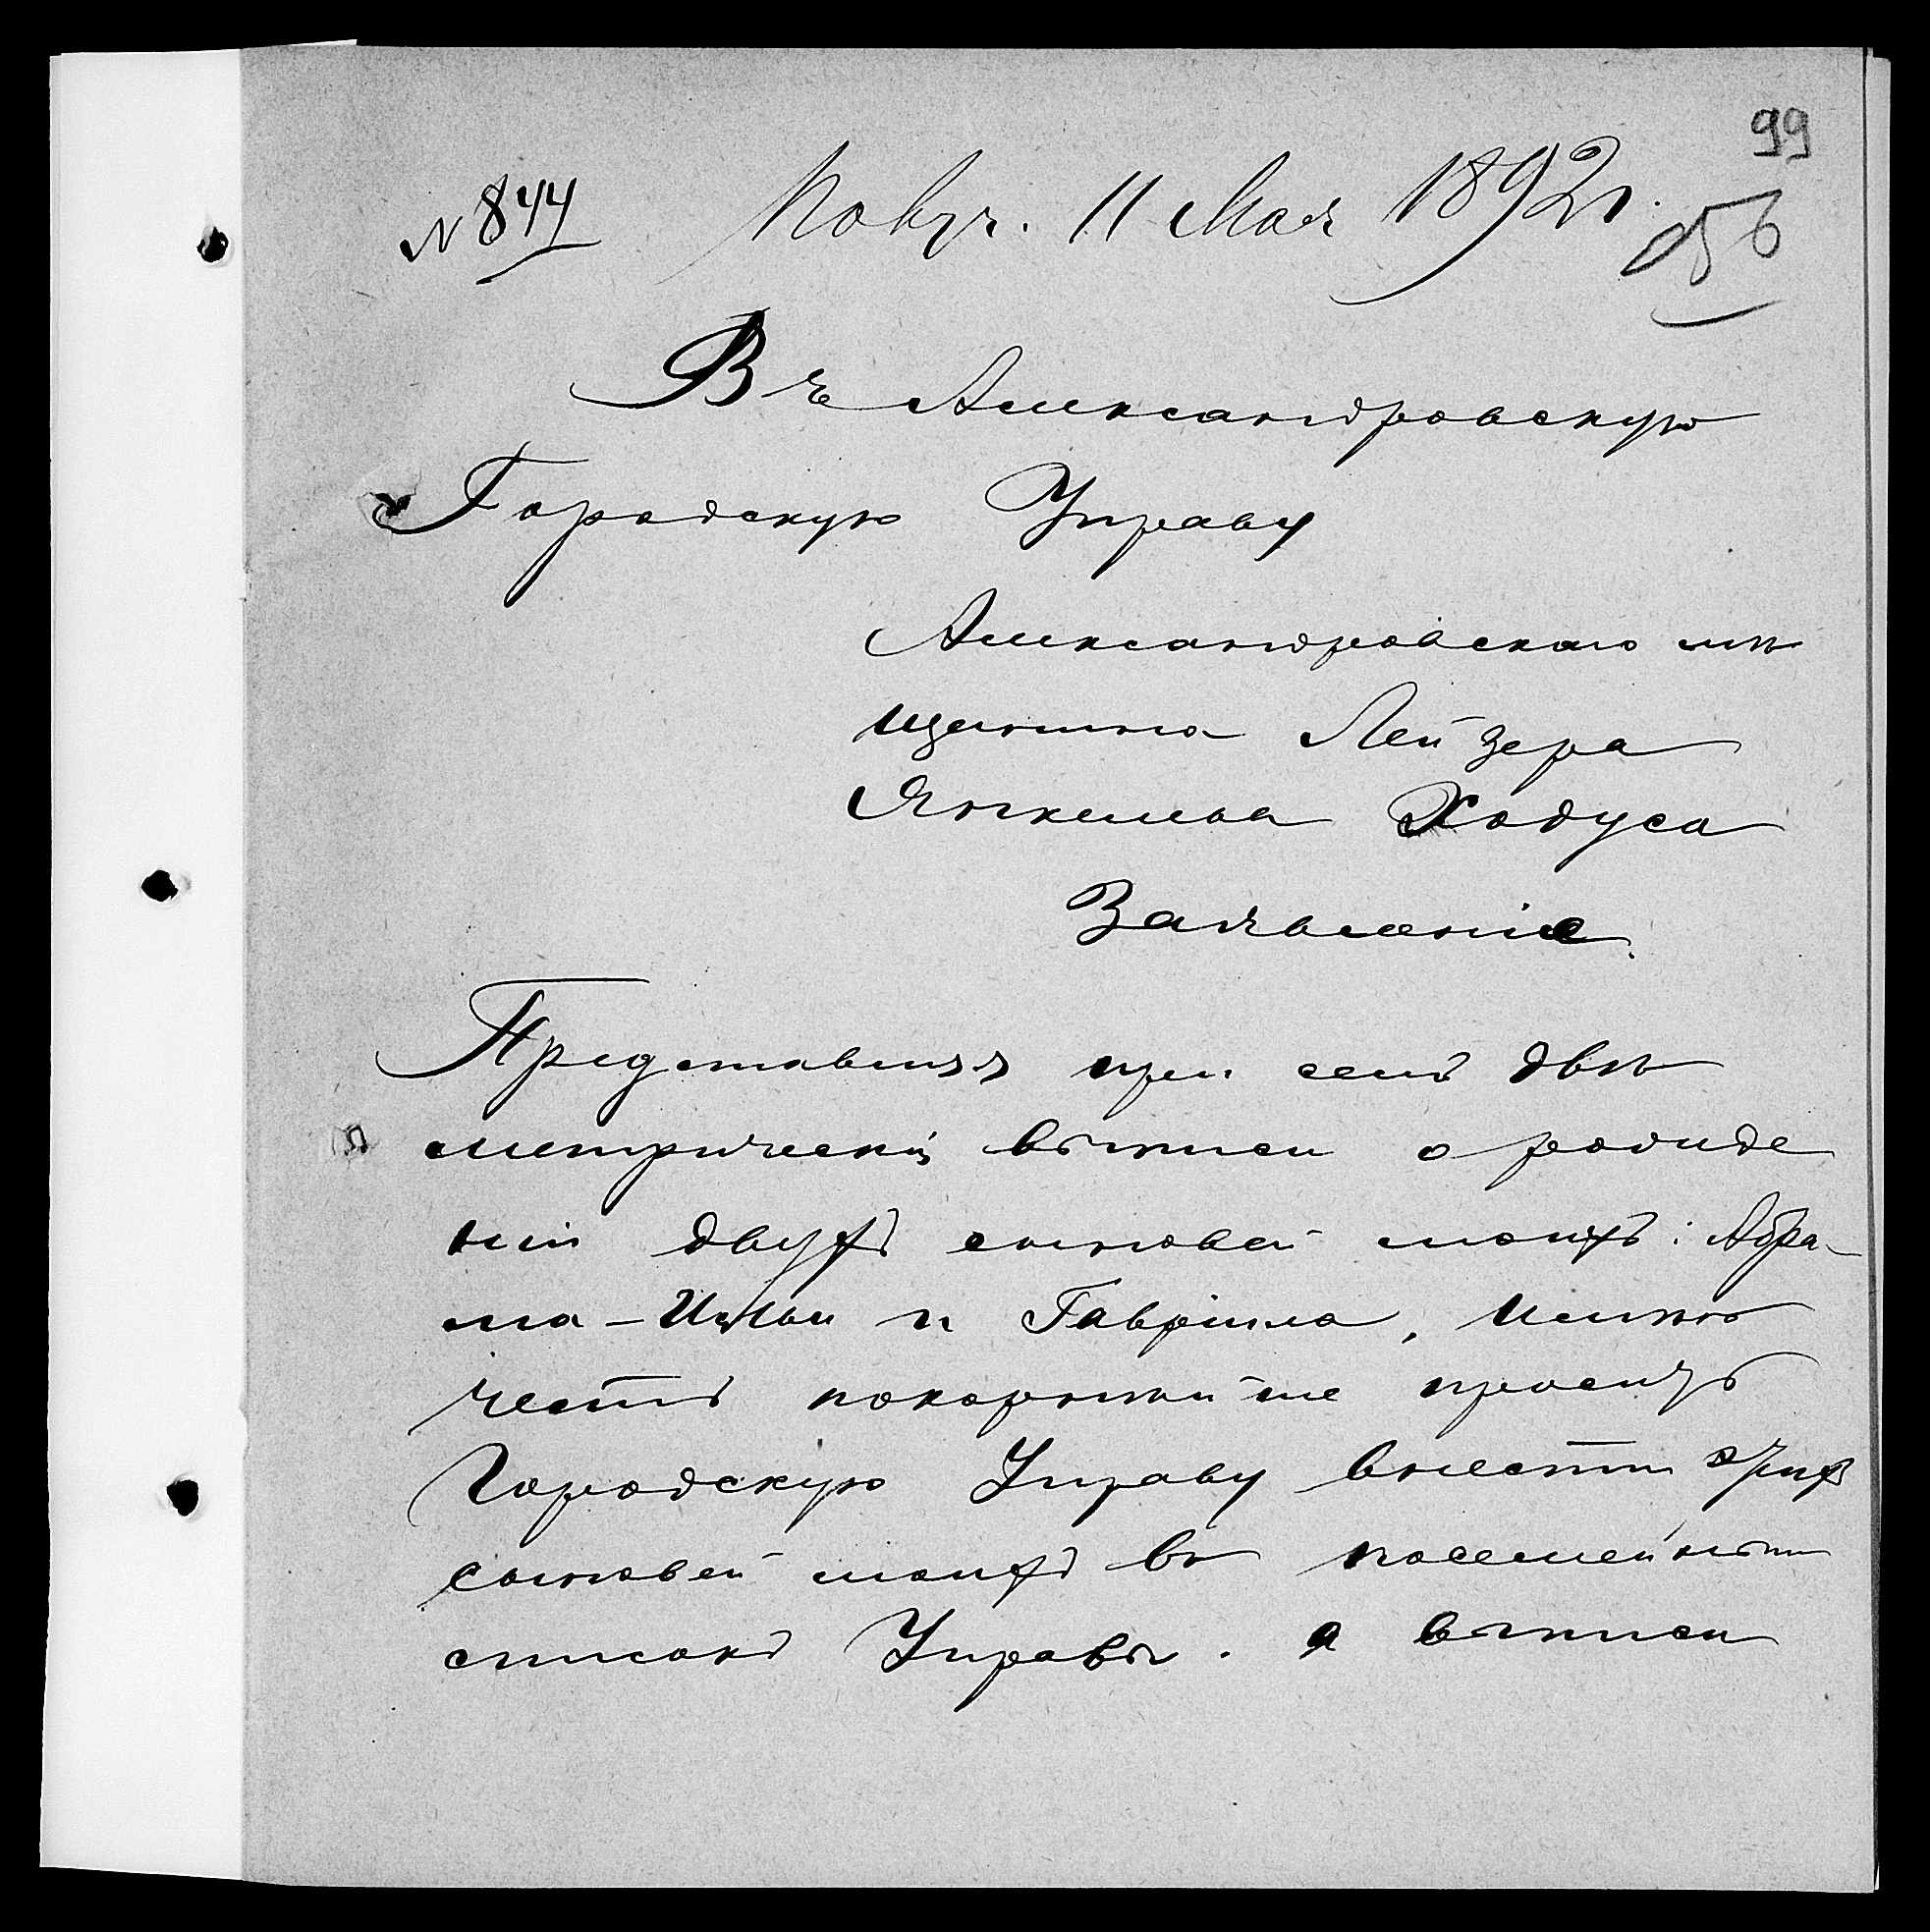 99
N 844 Получ. 11 Мая 1892 г.
256
Въ Александровскую
Городскую Управу
Александровскаго мѣ
щанина Лейзера
Янкелева Ходуса
Заявленіе.
Представляя при семъ двѣ
метрическія выписи о рожде
ніи двухъ сыновей моихъ: Абра-
ма-Ильи и Гавріила, имѣю
честь покорнѣйше просить
Городскую Управу внести этихъ
сыновей моихъ въ посемейный
списокъ Управы. а выписи